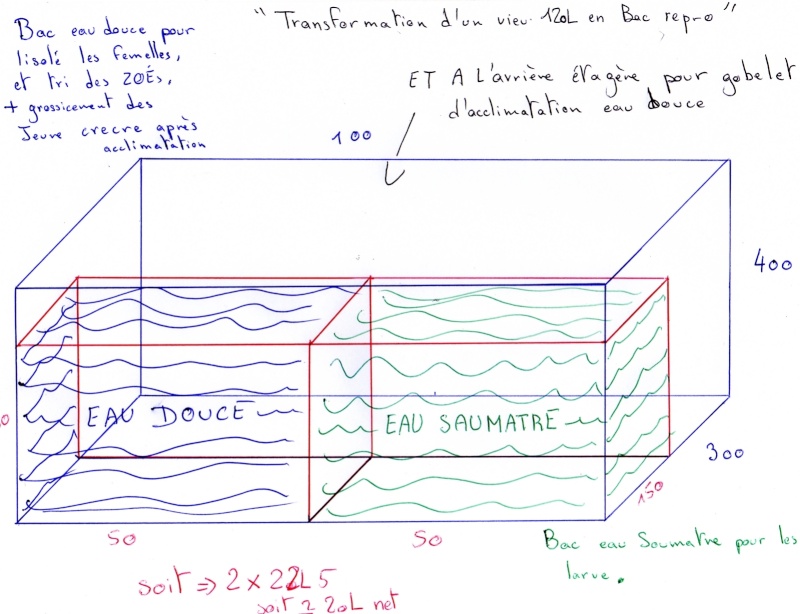 " Transformation d'un vieu 120L en Bac repro "
Bac eau douce pour
lisolé les femelles,
et tri des ZOÉs,
+ grossicement des
Jeuve crecre après
acclimatation
ET A L'arrière étagère pour gobelet
d'acclimatation eau douce
100
400
EAU DOUCE
EAU SAUMATRE
300
150
50
50
Bac eau Saumatre pour les
larve.
soit => 2 x 22L5
soit 2 20L net